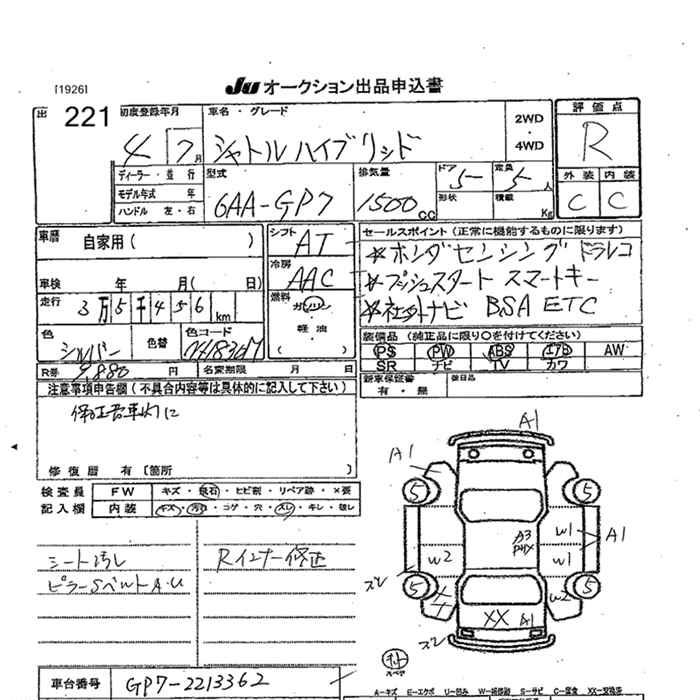 [1926] JU オークション出品申込書
出 221 初度登録年月 4 7月 車名・グレード シャトルハイブリッド 2WD・4WD 評価点 R
ディーラー・並行
モデル年式 年
ハンドル 左・右
型式 6AA-GP7 排気量 1500cc ドア 5 形状 定員 5人 積載 Kg
外装 内装
C C
車歴 自家用( ) シフト AT
冷房 AAC
車検 年 月( 日)
走行 3万5千456km 燃料 ガソリン 軽油・( )
色 シルバー 色替 色コード NH830M
R番 9,880円 名変期限 月 日
セールスポイント(正常に機能するものに限ります)
*ホンダセンシング ドラレコ
*プッシュスタート スマートキー
*社外ナビ BSA ETC
装備品(純正品に限り〇を付けてください)
PS PW ABS エアB AW
SR ナビ TV カワ
新車保証書 有・無 後日品
注意事項申告欄(不具合内容等は具体的に記入して下さい)
修復歴 有[箇所 ]
検査員 FW キズ・飛石・ヒビ割・リペア跡・×張
記入欄 内装 キズ・汚れ・コゲ・穴・スレ・キレ・破レ
シート汚レ
ピラーSベルトA・U
Rインナー修正
A1
A1
5 5
A3
W1
A1
W2 W1
ズレ 5 5
W2
XX A1
ズレ
スペア
車台番号 GP7-2213362
A-キズ E-エクボ U-凹み W-補修跡 S-サビ C-腐食 XX-交換済